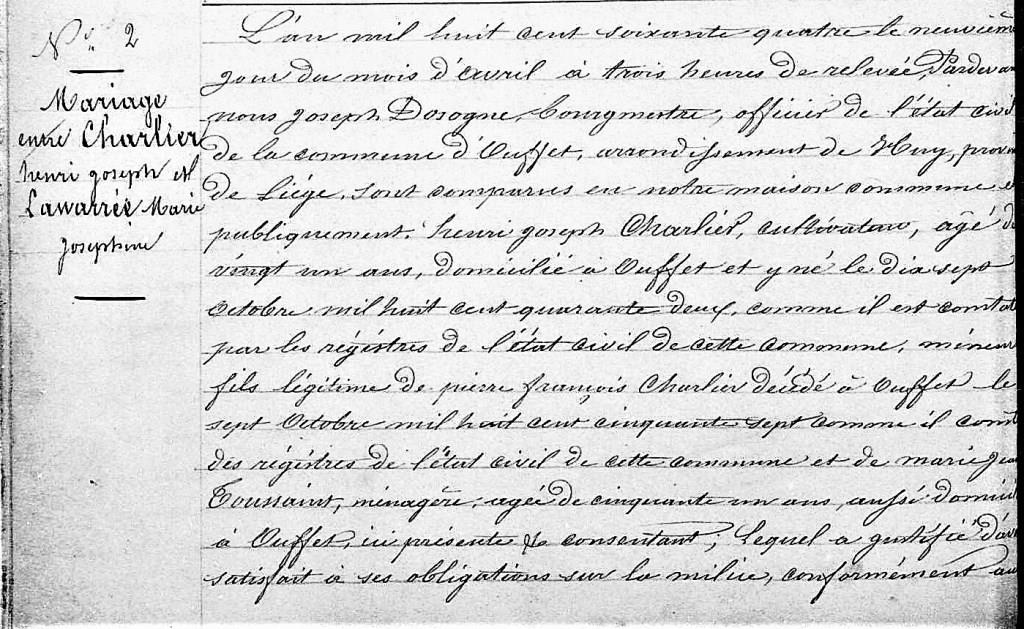 N° 2
Mariage
entre Charlier
henri joseph et
Lawarrée Marie
josephine
L'an mil huit cent soixante quatre le neuvièm
jour du mois d'avril à trois heures de relevée, Pardevan
nous joseph Dosogne, bourgmestre, officier de l'état civil
de la commune d'Ouffet, arrondissement de Huy, provin
de Liége, sont comparus en notre maison commune et
publiquement, henri joseph Charlier, cultivateur, âgé de
vingt un ans, domicilié à Ouffet et y né le dix sept
Octobre mil huit cent quarante deux, comme il est constat
par les régistres de l'état civil de cette commune, mineur
fils légitime de pierre françois Charlier décédé à Ouffet le
sept Octobre mil huit cent cinquante sept comme il const
des régistres de l'état civil de cette commune et de marie jean
Toussaint, ménagère, agée de cinquante un ans, aussi domicil
à Ouffet, ici présente & consentant; lequel a justifié d'avo
satisfait à ses obligations sur la milice, conformément au